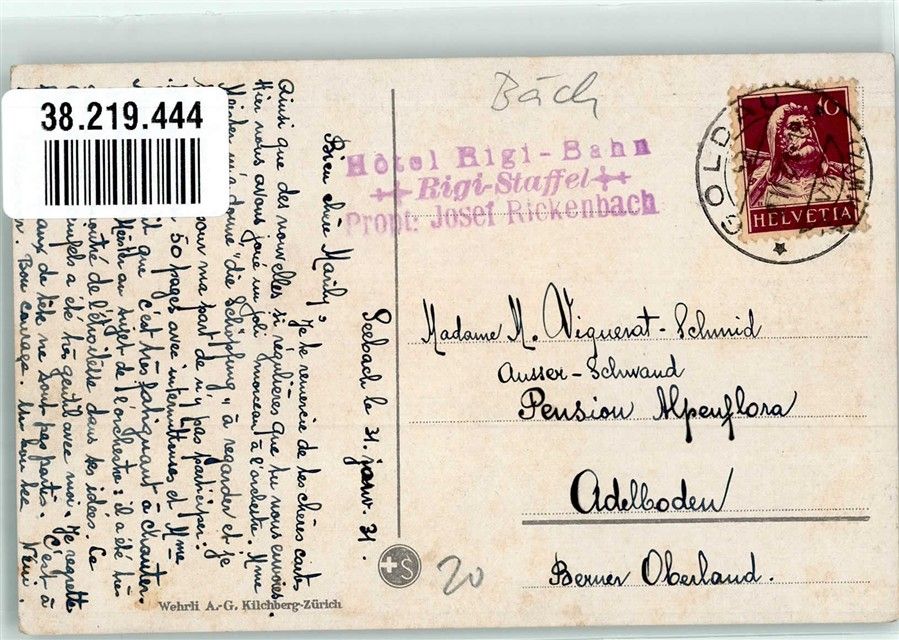 38.219.444
Bäch
Hôtel Rigi-Bahn
Rigi-Staffel
Propt: Josef Rickenbach
GOLDAU
10
HELVETIA
Seebach le 31. janv. 31.
Bien chère Marily, Je te remercie de tes chères cart
Ainsi que des nouvelles si régulières que tu nous envoies.
Hier nous avons joué un joli morceau à l'orchestre. Mme
Meister m'a donné "die Schöpfung" à regarder et je
pour ma part de n'y pas participer.
50 pages avec interruptions et Mme
que c'est très fatiguant à chanter.
Meister au sujet de l'orchestre: il a été
de l'époutette dans tes idées. Ce
a été très gentil avec moi. Je regrette
aux de tête ne sont pas partis. C'est à
Bon courage. Un bon bec
Madame M. Viguerat-Schmid
Ausser-Schwand
Pension Alpenflora
Adelboden
Berner Oberland.
S
20
Wehrli A.-G. Kilchberg-Zürich